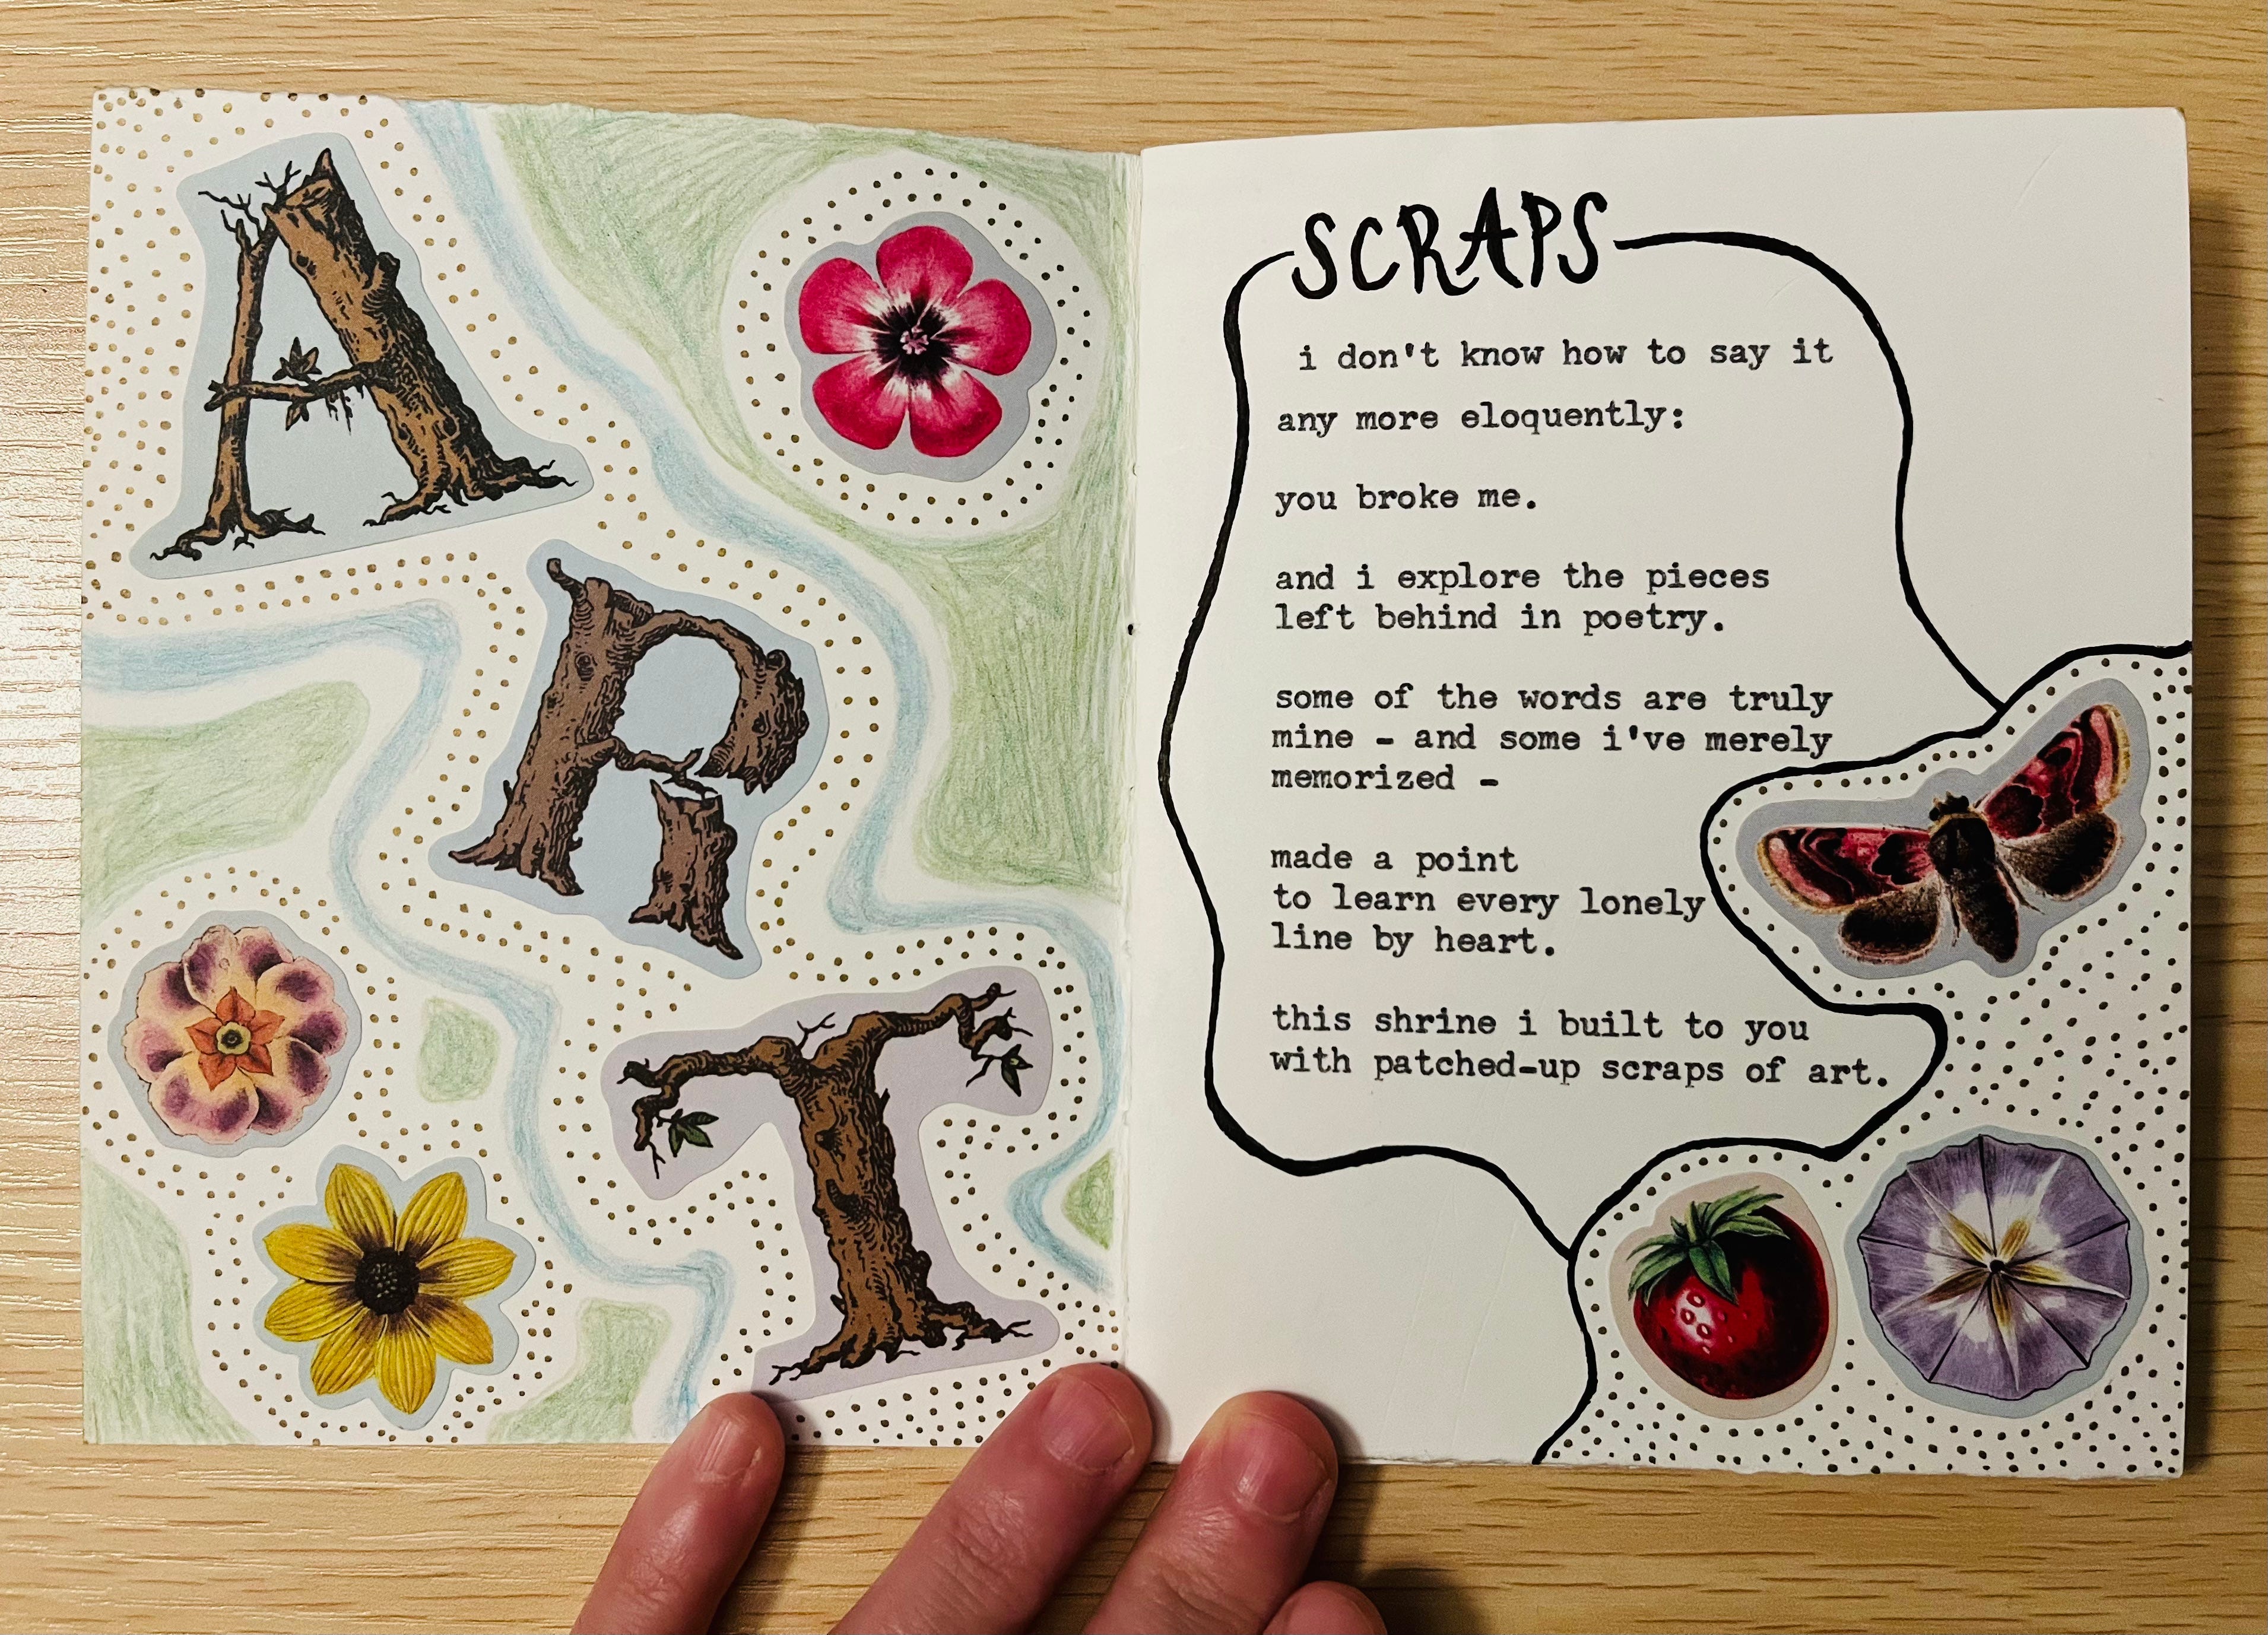 ART
SCRAPS
i don't know how to say it
any more eloquently:
you broke me.
and i explore the pieces
left behind in poetry.
some of the words are truly
mine - and some i've merely
memorized -
made a point
to learn every lonely
line by heart.
this shrine i built to you
with patched-up scraps of art.